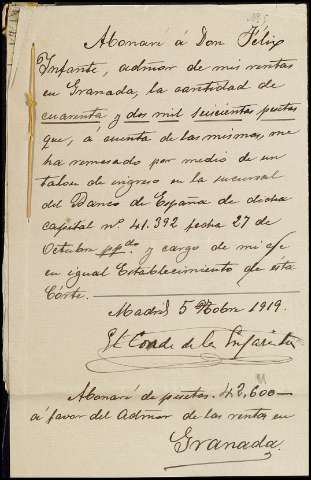 Abonaré á Don Félix
Infante, admor de mis rentas
en Granada, la cantidad de
cuarenta y dos mil seiscientas pesetas
que, á cuenta de las mismas, me
ha remesado por medio de un
talon de ingreso en la sucursal
del Banco de España de dicha
capital nº 41.392 fecha 27 de
Octubre ppdo y cargo de mi c/c
en igual Establecimiento de ésta
Corte.
Madrid 5 Nobre 1919.
El Conde de la
Abonaré de pesetas 42,600
á favor del Admor de las rentas en
Granada